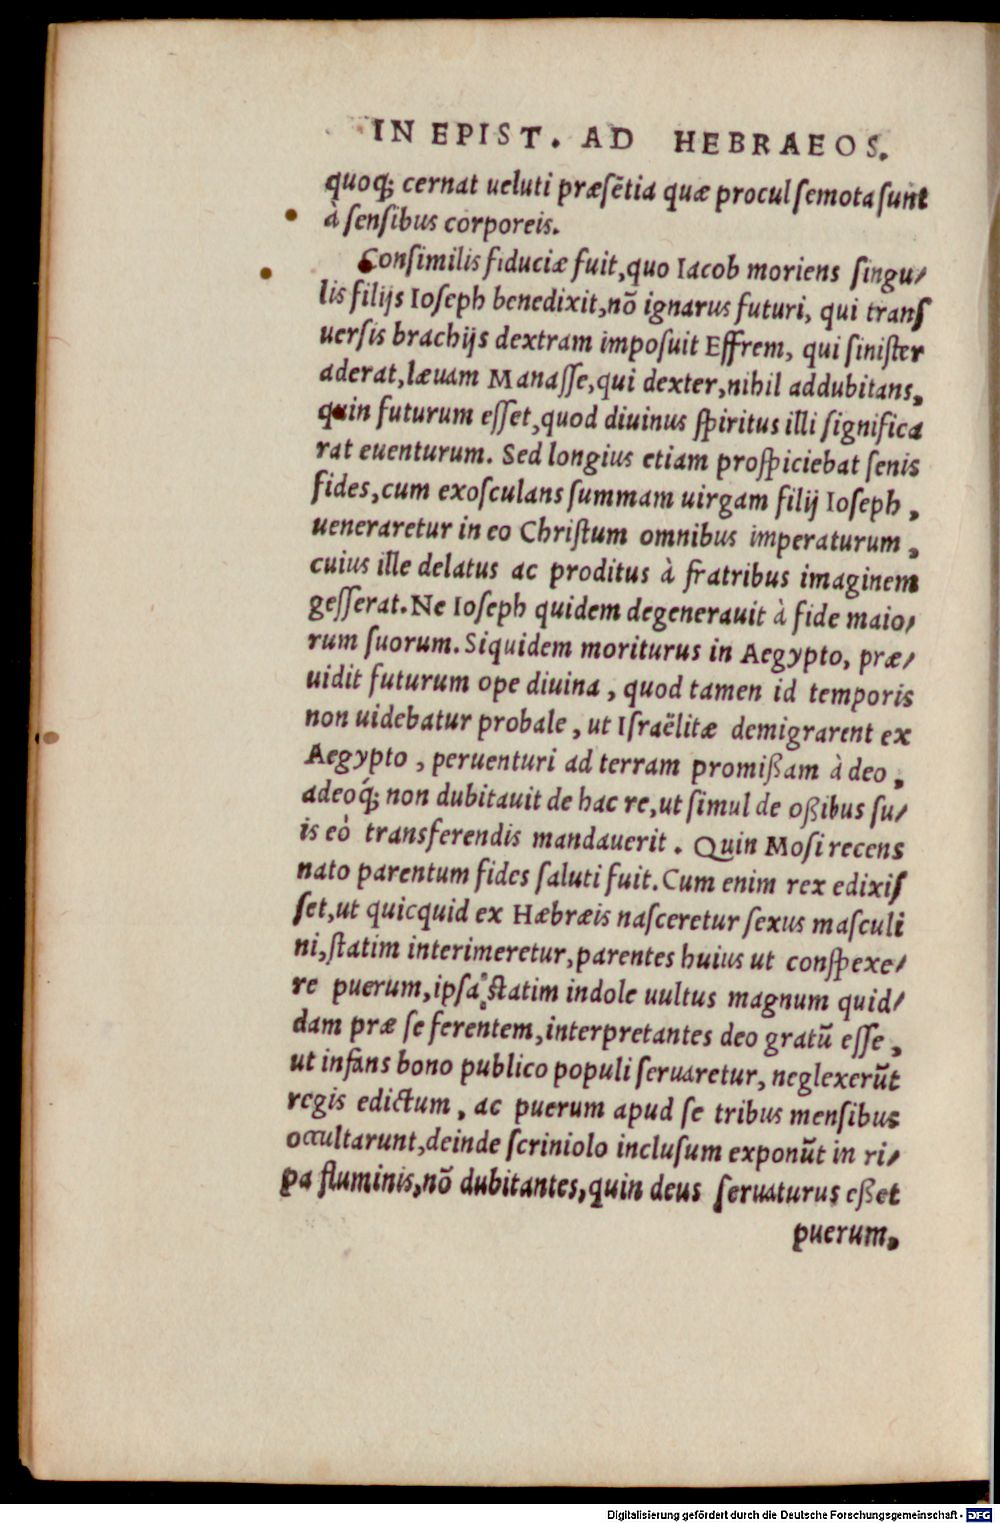 IN EPIST. AD HEBRAEOS.
quoq; cernat ueluti præsētia quæ procul semota sunt
à sensibus corporeis.
Consimilis fiduciæ fuit, quo Iacob moriens singu/
lis filijs Ioseph benedixit, nō ignarus futuri, qui trans
uersis brachijs dextram imposuit Effrem, qui sinister
aderat, læuam Manasse, qui dexter, nihil addubitans,
quin futurum esset, quod diuinus spiritus illi significa
rat euenturum. Sed longius etiam prospiciebat senis
fides, cum exosculans summam uirgam filij Ioseph,
ueneraretur in eo Christum omnibus imperaturum,
cuius ille delatus ac proditus à fratribus imaginem
gesserat. Ne Ioseph quidem degenerauit à fide maio/
rum suorum. Siquidem moriturus in Aegypto, præ/
uidit futurum ope diuina, quod tamen id temporis
non uidebatur probale, ut Israëlitæ demigrarent ex
Aegypto, peruenturi ad terram promißam à deo,
adeoq́; non dubitauit de hac re, ut simul de oßibus su/
is eò transferendis mandauerit. Quin Mosi recens
nato parentum fides saluti fuit. Cum enim rex edixis
set, ut quicquid ex Hæbræis nasceretur sexus masculi
ni, statim interimeretur, parentes huius ut conspexe/
re puerum, ipsa statim indole uultus magnum quid/
dam præ se ferentem, interpretantes deo gratū esse,
ut infans bono publico populi seruaretur, neglexerūt
regis edictum, ac puerum apud se tribus mensibus
occultarunt, deinde scriniolo inclusum exponūt in ri/
pa fluminis, nō dubitantes, quin deus seruaturus eßet
puerum,
Digitalisierung gefördert durch die Deutsche Forschungsgemeinschaft - DFG